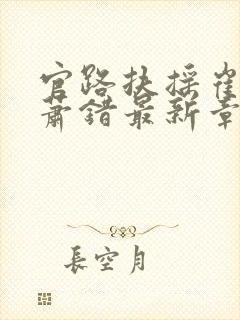 官路扶摇崔
萧错最新章
長空月